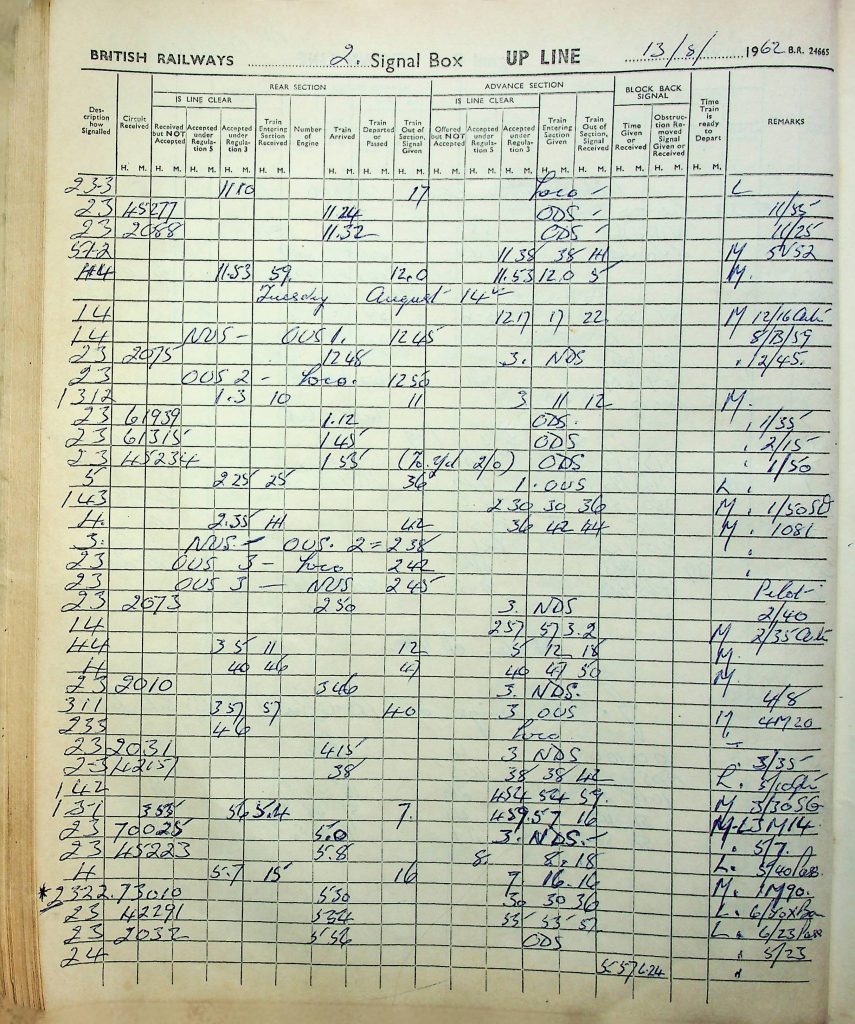 BRITISH RAILWAYS 2. Signal Box UP LINE 13/8/ 1962 B.R. 24665
REAR SECTION ADVANCE SECTION BLOCK BACK SIGNAL
IS LINE CLEAR IS LINE CLEAR
Description how Signalled Circuit Received Received but NOT Accepted Accepted under Regulation 5 Accepted under Regulation 3 Train Entering Section Received Number of Engine Train Arrived Train Departed or Passed Train Out of Section, Signal Given Offered but NOT Accepted Accepted under Regulation 5 Accepted under Regulation 3 Train Entering Section Given Train Out of Section, Signal Received Time Given or Received Obstruction Removed Signal Given or Received Time Train is ready to Depart REMARKS
H. M. H. M. H. M. H. M. H. M. H. M. H. M. H. M. H. M. H. M. H. M. H. M. H. M. H. M. H. M. H. M.
23-3 11.10 17 Loco - L
23 45277 11.24 ODS - 11/55
23 2068 11.32 ODS - 11/25
57-2 11.38 38 H1 M 5V52
H4 11.53 59. 12.0 11.53 12.0 5 M.
Tuesday August 14th
14 12.17 17 22 M 12/16
14 NUS - OUS 1. 1245 8/B/59
23 2075 1248 3. NDS . 12/45.
23 OUS 2 - Loco. 1250
1312 1.3 10 11 3 11 12 M.
23 61939 1.12 ODS. . 1/35
23 61315 145 ODS . 2/15
23 45234 1 55 (To yd 2/0) ODS . 1/50
5 2 25 25 36 1. OUS L .
143 2 30 30 36 M . 1/50
H. 2.35 H1 42 36 42 44 M . 1081
3. NUS - OUS. 2 = 238 .
23 OUS 3 - Loco 242 .
23 OUS 3 - NUS 245 Pilot
23 2073 250 3. NDS 2/40
14 257 57 3.2 M 2/35
H4 3 5 11 12 5 12 18 M.
H 40 46 47 40 47 50 M
23 2010 346 3. NDS. 4/8
311 357 57 40 3 OUS M 4M20
233 46 Loco
23 2031 415 3 NDS . 3/35
23 42157 38 38 38 42 L. 5/10
142 454 54 59. M 3/30
131 355 56 5.4 7. 459.57 16 M-L3M14.
23 70025 5.0 3. NDS. - . 5/7.
23 45223 5.8 8. 8. 18 L. 5/40
H 5.7 15 16 9 16. 16 M. 1M90.
*2322.73010 530 30 30 36 L. 6/
23 42291 534 55 55 57 L . 6/23
23 2032 556 ODS . 5/23
24 55 57 6.24 .